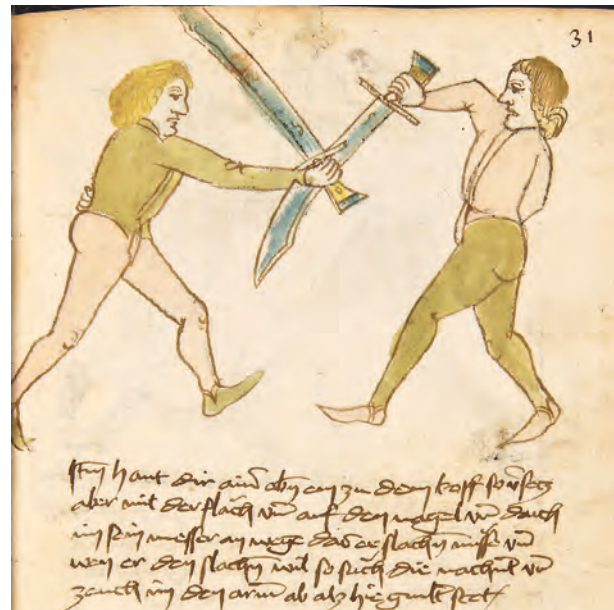 31
Jtm haut dir ainer obn ein zu dem kopff so vsetz
aber mit der flach vn auf den nagel vn druch
im sein messer an wege das er slachn müsse vn
wen er den slachn wil so sich die nachnt vn
zeuch im den arm ab alz hie gmlt stet